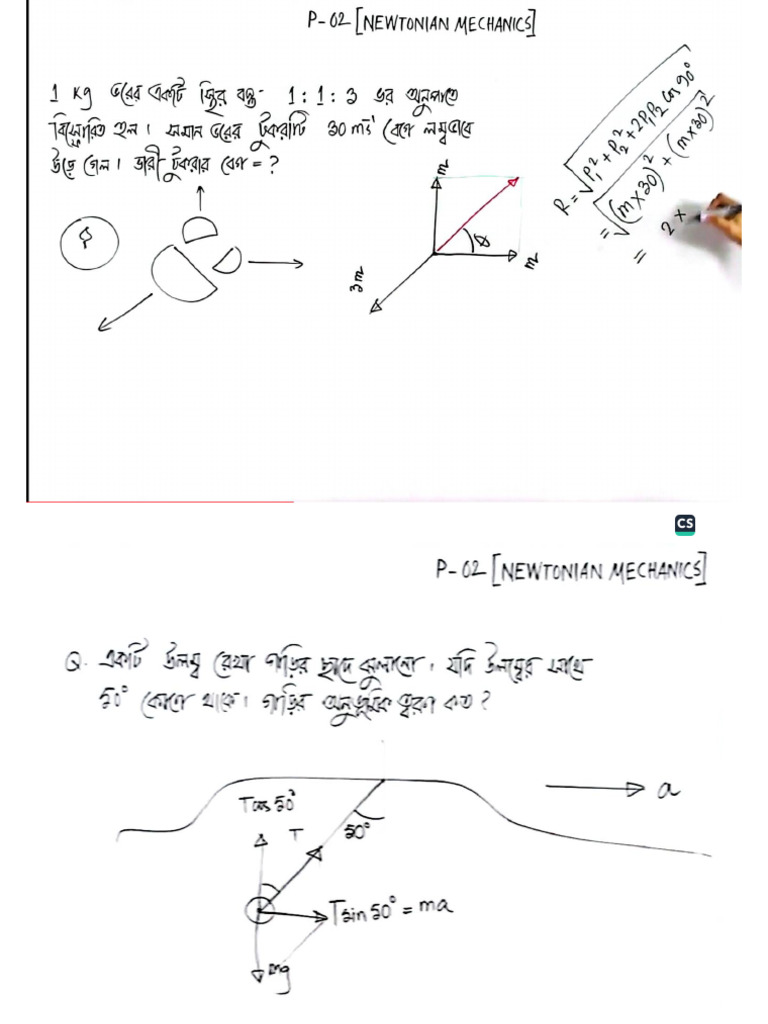 P-02 [NEWTONIAN MECHANICS]
1 kg ভরের একটি স্থির বস্তু 1 : 1 : 3 ভর অনুপাতে
বিস্ফোরিত হল। সমান ভরের টুকরাটি 30 ms⁻¹ বেগে লম্বভাবে
উড়ে গেল। ভারী টুকরার বেগ = ?
R = √P₁² + P₂² + 2P₁P₂ cos 90°
= √(m×30)² + (m×30)²
= 2 ×
m
m
3m
CS
P-02 [NEWTONIAN MECHANICS]
Q. একটি উলম্ব রেখা গাড়ির ছাদে ঝুলানো। যদি উলম্বের সাথে
50° কোণে থাকে। গাড়ির অনুভূমিক ত্বরণ কত?
a
T cos 50°
T
50°
T sin 50° = ma
mg